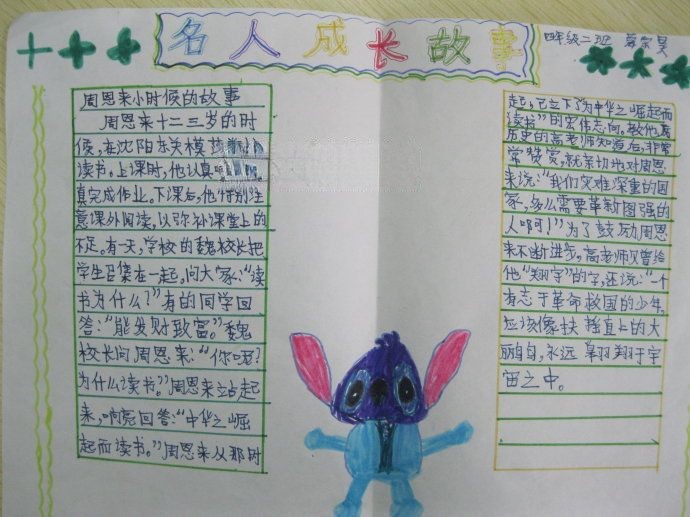 名人成长故事
四年级二班
周恩来小时候的故事
周恩来十二三岁的时
候，在沈阳东关模
读书。上课时，他认真
真完成作业。下课后，他特别注
意课外阅读，以弥补课堂上的
不足。有一天，学校的魏校长把
学生召集在一起。问大家：“读
书为什么？”有的同学回
答：“能发财致富。”魏
校长问周恩来：“你呢？
为什么读书。”周恩来站起
来，响亮回答：“中华之崛
起而读书。”周恩来从那时
起，已立下了“为中华之崛起而
读书”的宏伟志向。教他
历史的高老师知道后，非常
常赞赏，就亲切地对周恩
来说：“我们灾难深重的国
家，多么需要革新图强的
人啊！”为了鼓励周恩
来不断进步。高老师又曾给
他“翔宇”的字，还说：“一个
有志于革命救国的少年。
应该像扶摇直上的大
鹏鸟，永远翱翔于宇
宙之中。